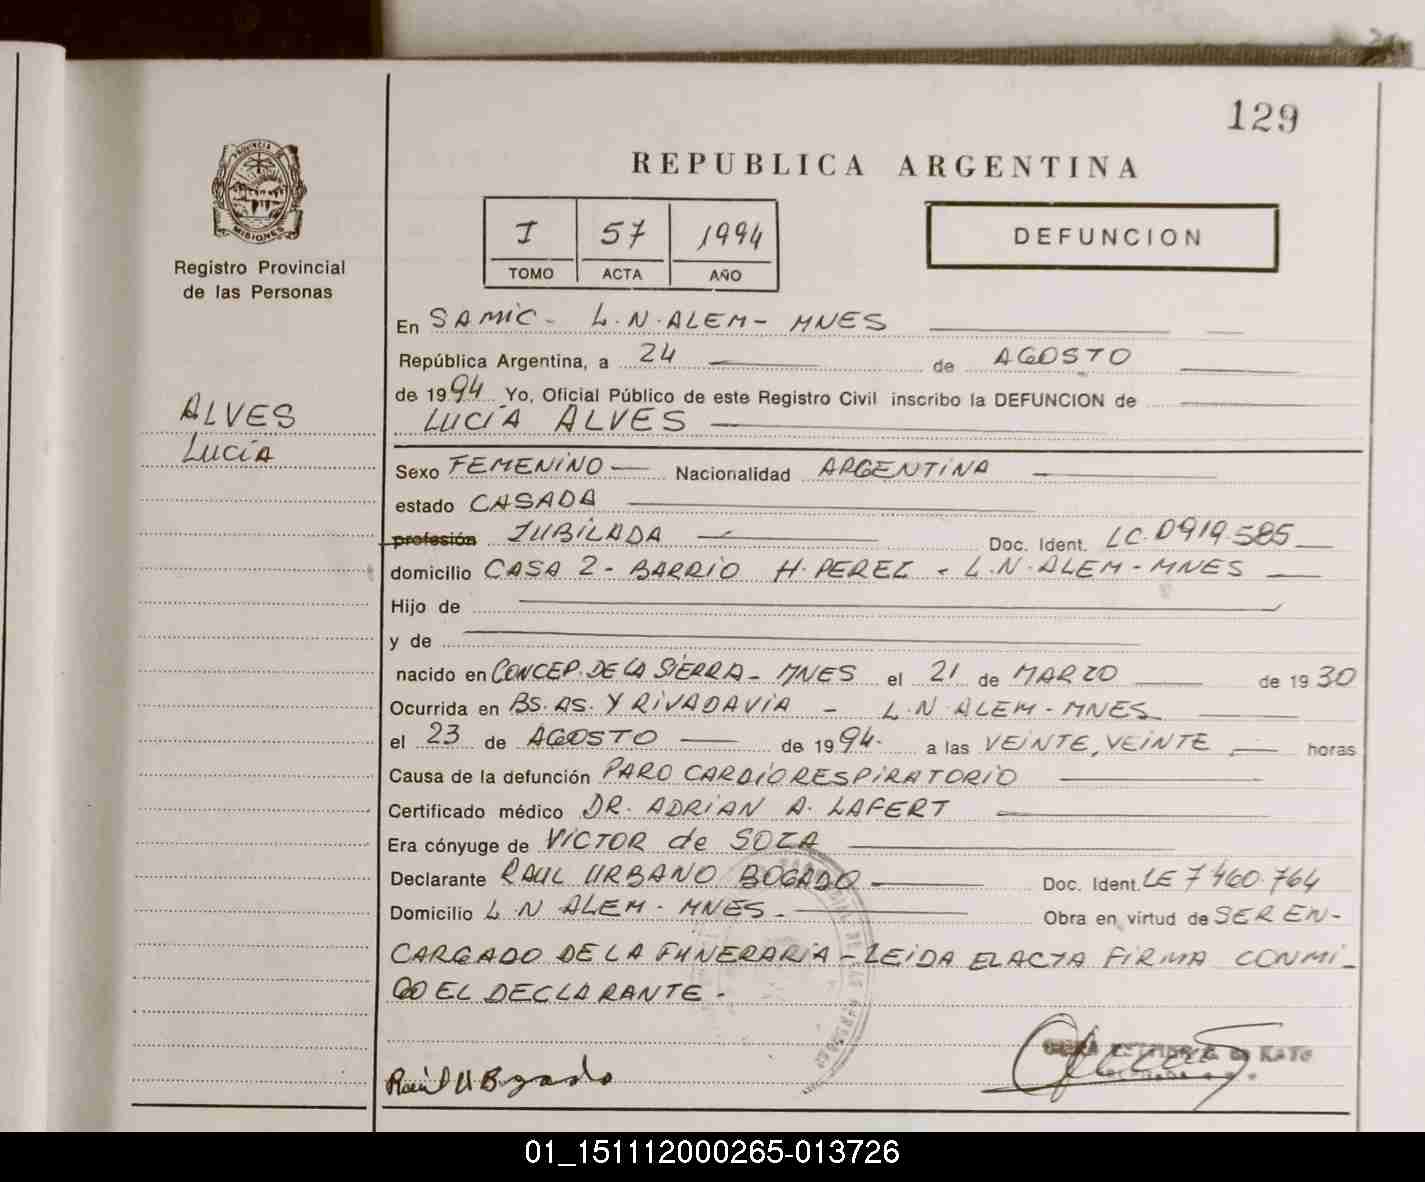 129
PROVINCIA DE
MISIONES
Registro Provincial
de las Personas
REPUBLICA ARGENTINA
I 57 1994
TOMO ACTA AÑO
DEFUNCION
En SAMIC - L.N.ALEM - MNES
República Argentina, a 24 de AGOSTO
de 1994 Yo, Oficial Público de este Registro Civil inscribo la DEFUNCION de
LUCÍA ALVES
ALVES
LUCÍA
Sexo FEMENINO Nacionalidad ARGENTINA
estado CASADA
profesión JUBILADA Doc. Ident. LC. 0919.585
domicilio CASA 2 - BARRIO H. PEREZ - L.N.ALEM - MNES
Hijo de
y de
nacido en CONCEP. DE LA SIERRA - MNES el 21 de MARZO de 1930
Ocurrida en BS. AS. Y RIVADAVIA - L.N ALEM - MNES
el 23 de AGOSTO de 1994. a las VEINTE, VEINTE horas
Causa de la defunción PARO CARDIORESPIRATORIO
Certificado médico DR. ADRIAN A. LAFERT
Era cónyuge de VICTOR de SOZA
Declarante RAUL URBANO BOGADO Doc. Ident. LE 7460.764
Domicilio L.N ALEM - MNES - Obra en virtud de SER EN-
CARGADO DE LA FUNERARIA - LEIDA EL ACTA FIRMA CONMI-
GO EL DECLARANTE -
Raúl U Bogado
DE KATO
01_151112000265-013726